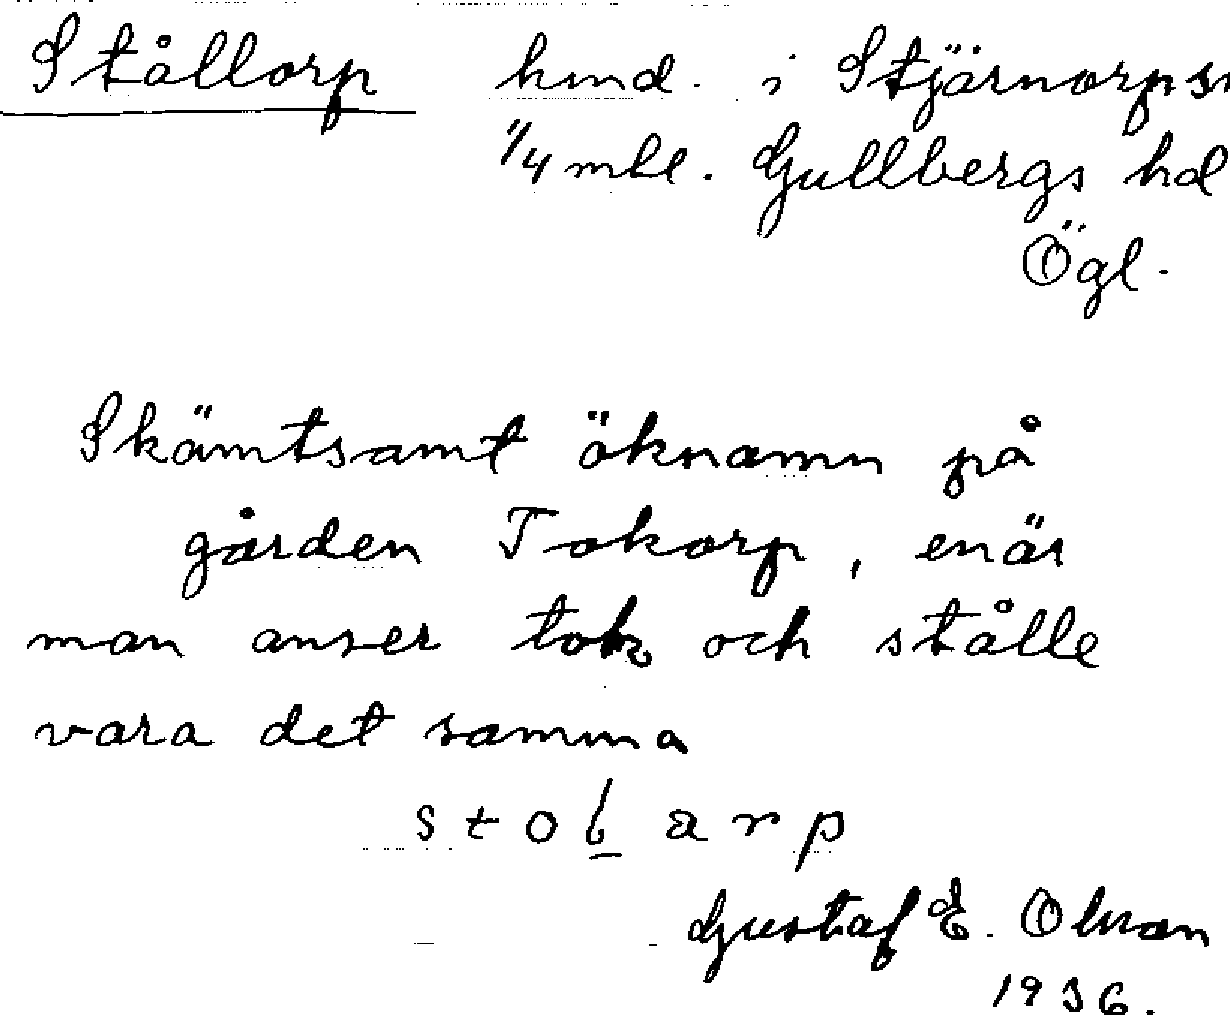 Stållorp hmd. i Stjärnorps
1/4 mtl. Gullbergs hd
Ögl.
Skämtsamt öknamn på
gården Tokorp, enär
man anser tok och stålle
vara det samma
stoḷarp
Gustaf E. Olsson
1936.